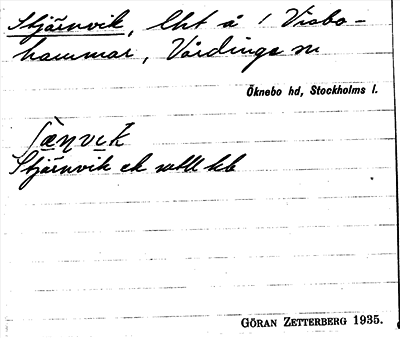 Stjärnvik, lht å 1 Visbo-
hammar, Vårdinge sn
Öknebo hd, Stockholms l.
Stjärnvik ek
GÖRAN ZETTERBERG 1935.